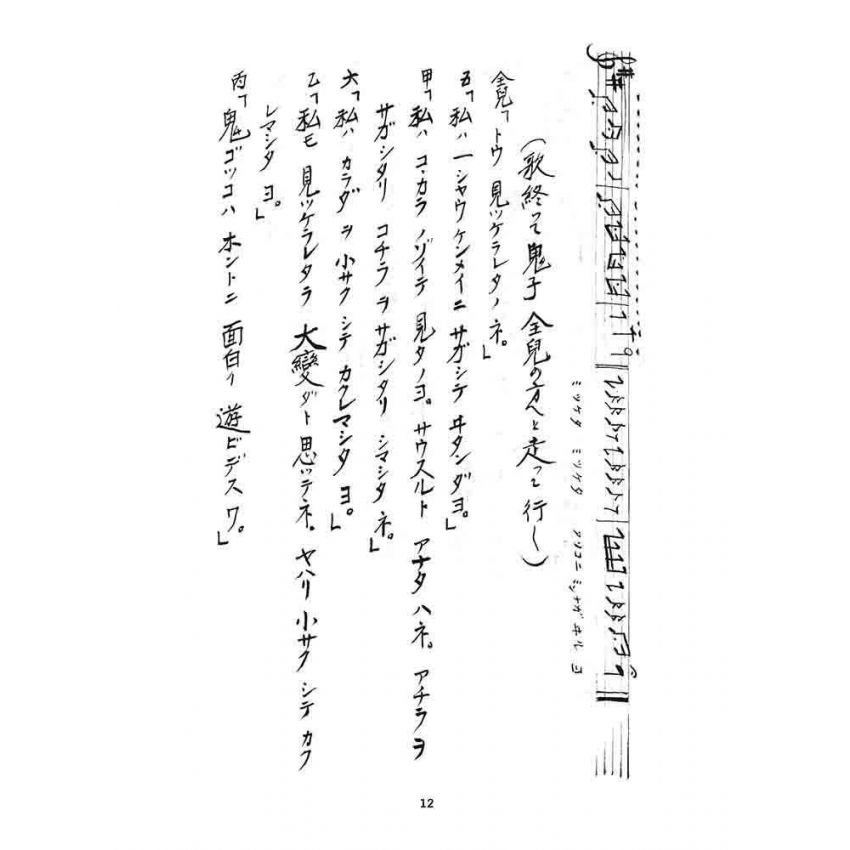 ミツケタ ミツケタ アソコニ ミンナガ ヰル ヨ
(歌終って鬼子全児の方へと走って行く)
全児「トウ 見ツケラレタノ ネ。」
五「私ハ 一シャウケンメイニ サガシテ ヰタンダヨ。」
甲「私ハ コヽカラ ノゾイテ 見タノヨ。サウスルト アナタ ハネ。アチラヲ
サガシタリ コチラ ヲ サガシタリ シマシタ ネ。」
六「私ハ カラダ ヲ 小サク シテ カクレマシタ ヨ。」
乙「私モ 見ツケラレタラ 大變ダト 思ッテネ。ヤハリ 小サク シテ カク
レマシタ ヨ。」
丙「鬼ゴッコハ ホントニ 面白イ 遊ビデス ワ。」
12